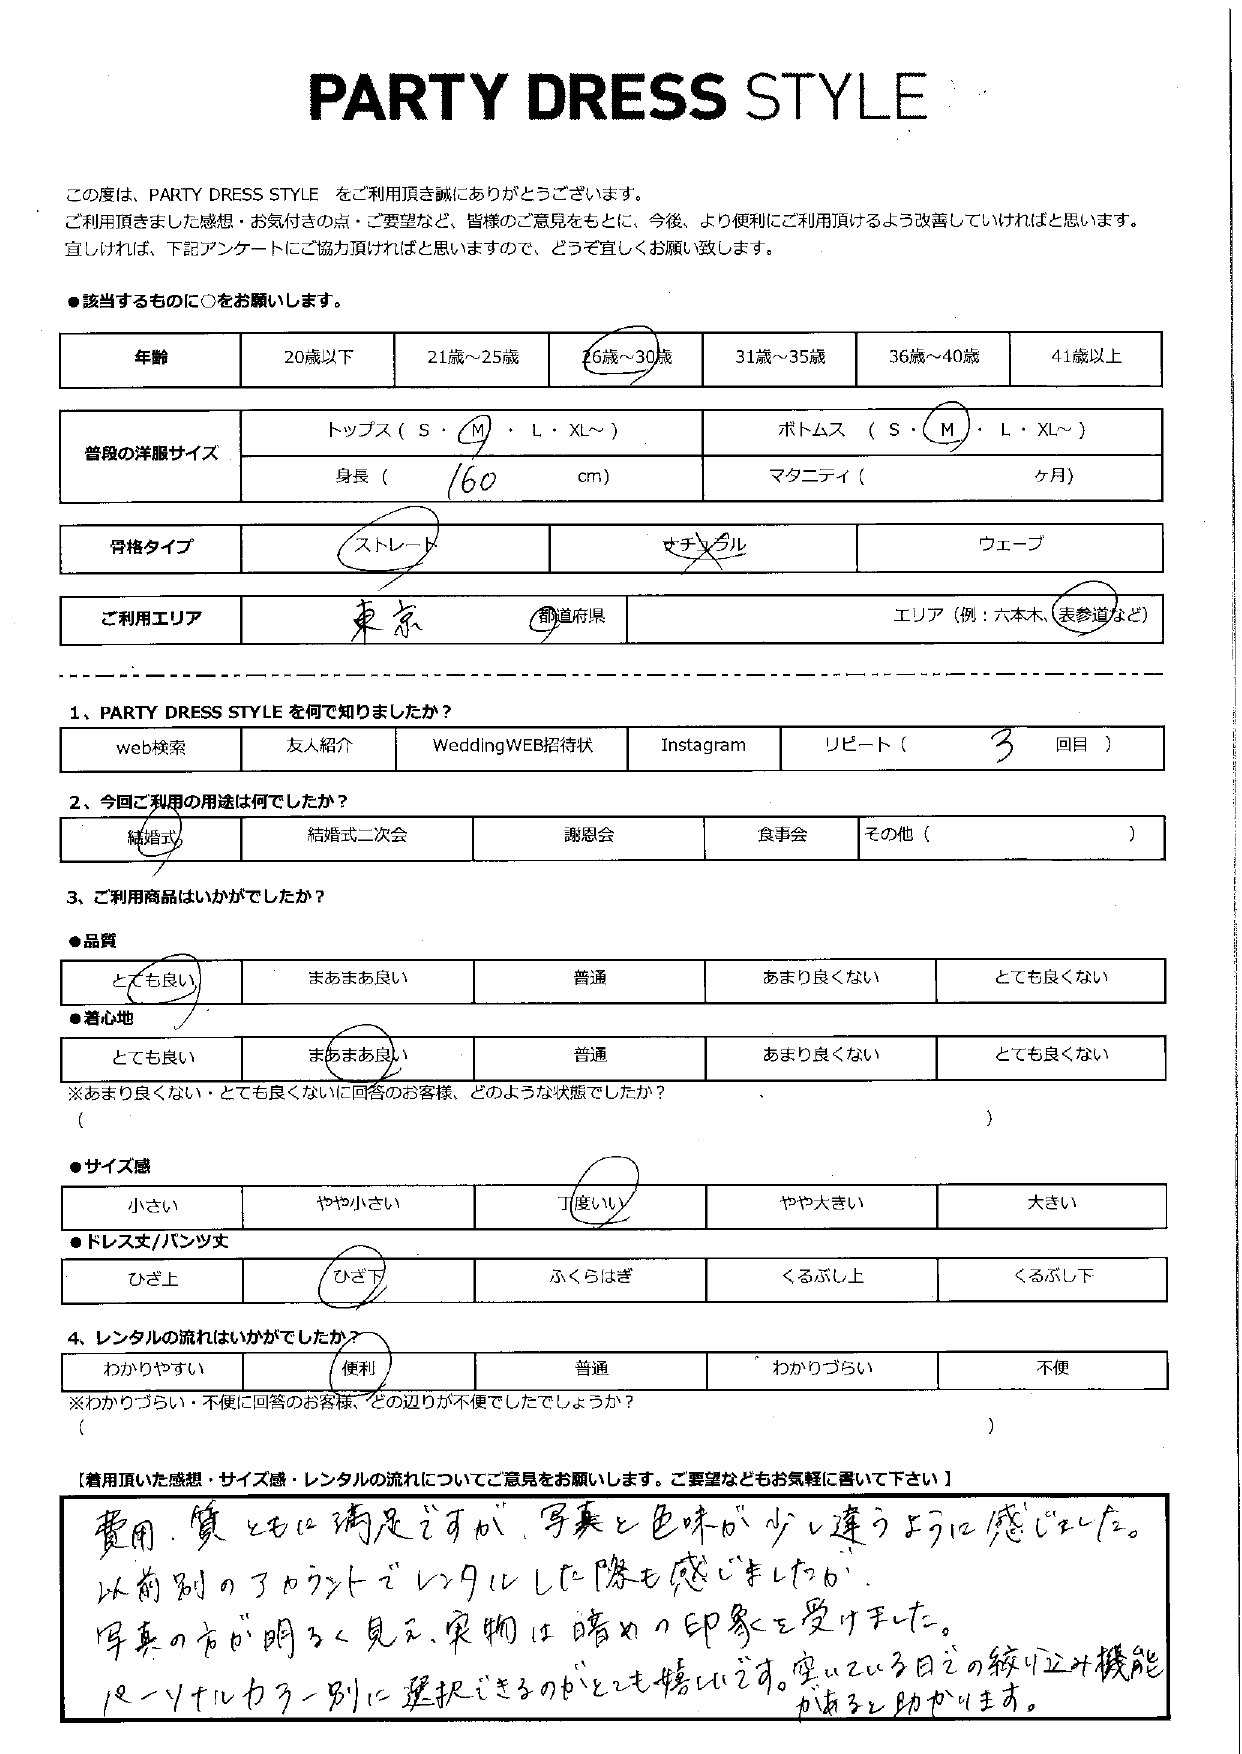 PARTY DRESS STYLE
この度は、PARTY DRESS STYLE をご利用頂き誠にありがとうございます。
ご利用頂きました感想・お気付きの点・ご要望など、皆様のご意見をもとに、今後、より便利にご利用頂けるよう改善していければと思います。
宜しければ、下記アンケートにご協力頂ければと思いますので、どうぞ宜しくお願い致します。
●該当するものに○をお願いします。
年齢 20歳以下 21歳～25歳 26歳～30歳 31歳～35歳 36歳～40歳 41歳以上
普段の洋服サイズ トップス ( S ・ M ・ L ・ XL～ ) ボトムス ( S ・ M ・ L ・ XL～ )
身長 ( 160 cm) マタニティ ( ヶ月)
骨格タイプ ストレート ナチュラル ウェーブ
ご利用エリア 東京 都道府県 エリア（例：六本木、表参道など）
1、PARTY DRESS STYLE を何で知りましたか？
web検索 友人紹介 WeddingWEB招待状 Instagram リピート ( 3 回目 )
2、今回ご利用の用途は何でしたか？
結婚式 結婚式二次会 謝恩会 食事会 その他 ( )
3、ご利用商品はいかがでしたか？
●品質
とても良い まあまあ良い 普通 あまり良くない とても良くない
●着心地
とても良い まあまあ良い 普通 あまり良くない とても良くない
※あまり良くない・とても良くないに回答のお客様、どのような状態でしたか？
( )
●サイズ感
小さい やや小さい 丁度いい やや大きい 大きい
●ドレス丈/パンツ丈
ひざ上 ひざ下 ふくらはぎ くるぶし上 くるぶし下
4、レンタルの流れはいかがでしたか？
わかりやすい 便利 普通 わかりづらい 不便
※わかりづらい・不便に回答のお客様、どの辺りが不便でしたでしょうか？
( )
【着用頂いた感想・サイズ感・レンタルの流れについてご意見をお願いします。ご要望などもお気軽に書いて下さい 】
費用、質ともに満足ですが、写真と色味が少し違うように感じました。
以前別のアカウントでレンタルした際も感じましたが、
写真の方が明るく見え、実物は暗めの印象を受けました。
パーソナルカラー別に選択できるのがとても嬉しいです。空いている日での絞り込み機能
があると助かります。